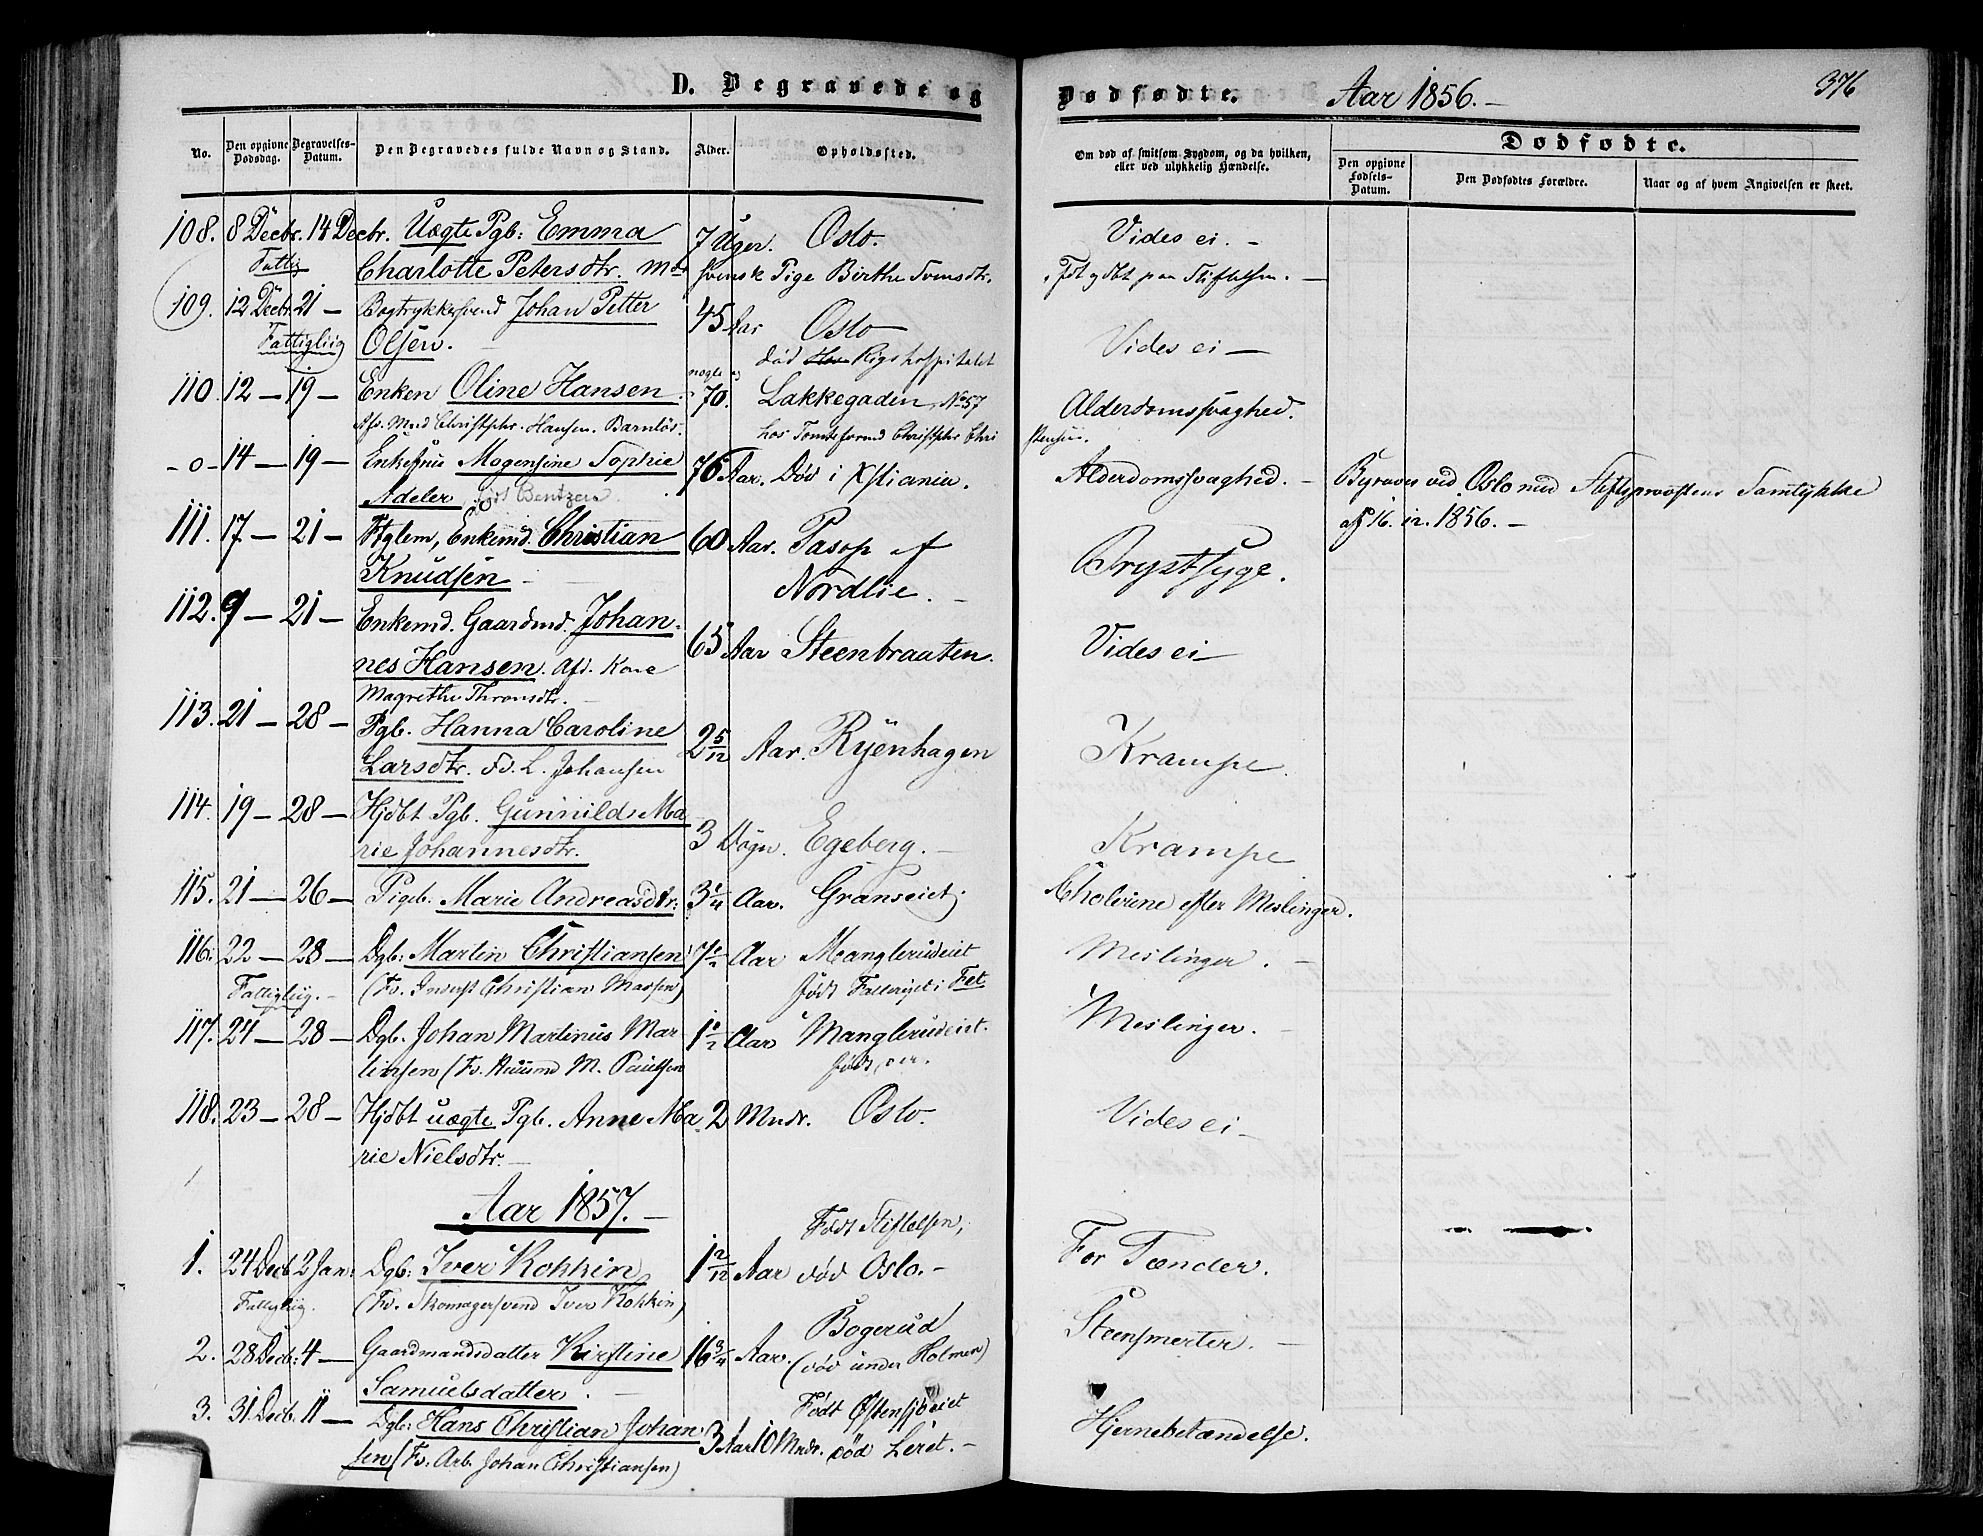 D. Begravede og Dødfødte. Aar 1856. 376
No. Den opgivne Dødsdag. Begravelses-Datum. Den Begravedes fulde Navn og Stand. Alder. Opholdssted.
Om død af smitsom Sygdom, og da hvilken, eller ved ulykkelig Hændelse.
Dødfødte.
Den opgivne Fødsels-Datum. Den Dødfødtes Forældre. Naar og af hvem Angivelsen er skeet.
108. 8 Decbr. 14 Decbr. Uægte Pgb: Emma 7 Uger. Oslo. Vides ei. –
Fattig Charlotte Petersdtr. svensk Pige Birthe Svensdtr. Fdt og dbt paa Stiftelsen. –
109. 12 Decbr. 21 – Bogtrykkersvend Johan Petter 45 Aar Oslo Vides ei –
Fattigliig Olsen. – død Rigshospitalet
110. 12 – 19 – Enken Oline Hansen nogle og 70. Lakkegaden, No 57 Alderdomssvaghed.
Afd. Mand Christopher Hansen. Barnløs. hos Tomteformd Christopher Christensen.
– o – 14 – 19 – Enkefrue Mogensine Sophie 76 Aar. Død i Xstiania. Alderdomssvaghed. – Begraves ved Oslo med Stiftsprovstens Samtykke
Adeler, født Bentzen. af 16. 12. 1856. –
111. 17 – 21 – Ftglem, Enkemd. Christian 60 Aar. Pasop af Brystsyge.
Knudsen – Nordlie. –
112. 9 – 21 – Enkemd. Gaardmd. Johan- 65 Aar Steenbraaten. Vides ei –
nes Hansen. Afd. Kone
Magrethe Thronsdtr. –
113. 21 – 28 – Pgb. Hanna Caroline 2 5/12 Aar. Ryenhagen Krampe.
Larsdtr. Fd. L. Johansen
114. 19 – 28 – Hjdbt Pgb. Gunnild Ma- 3 Døgn. Egeberg. – Krampe
rie Johannesdtr.
115. 21 – 26 – Pigeb. Marie Andreasdtr: 3 1/4 Aar. Granseiet Cholerine efter Meslinger.
116. 22 – 28 – Dgb: Martin Christiansen 7 1/2 Aar Manglerudeiet Meslinger. –
Fattigliig. – (Fd. Inderst Christian Massen) født i Fet
117. 24 – 28 – Dgb. Johan Martinus Mar- 1 1/2 Aar Manglerudeiet. Meslinger. –
tinsen (Fd. Huusmd M. Paulsen født der.
118. 23 – 28 – Hjdbt uægte Pgb. Anne Ma- 2 Mndr. Oslo. Vides ei –
rie Nielsdtr. –
Aar 1857. –
Født Stiftelsen,
1. 24 Decb. 2 Jan: Dgb: Iver Kokkin 1 2/12 Aar død Oslo. – For Tænder.
Fattigliig. (Fd. Skomagersvend Iver Kokkin)
2. 28 Decb: 4 – Gaardmandsdatter Kirstine 16 3/4 Aar. Bogerud (død under Holmen) Steensmerter. –
Samuelsdatter. –
3. 31 Decb. 11 – Dgb: Hans Christian Johan- 3 Aar 10 Mndr. Født Østensjøeiet død Leret. – Hjernebetændelse.
sen (Fd. Arb. Johan Christiansen)